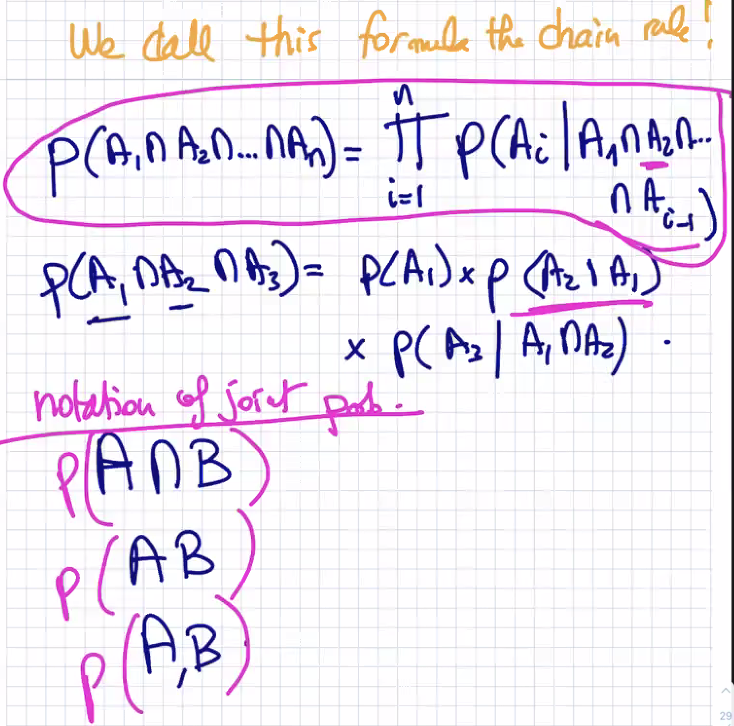 We call this formula the chain rule!
P(A₁∩A₂∩...∩Aₙ) = ∏ⁿᵢ₌₁ P(Aᵢ | A₁∩A₂∩...
∩Aᵢ₋₁)
P(A₁∩A₂∩A₃) = P(A₁) × P(A₂|A₁)
× P(A₃ | A₁∩A₂) .
notation of joint prob.
P(A∩B)
P(AB)
P(A,B)
29